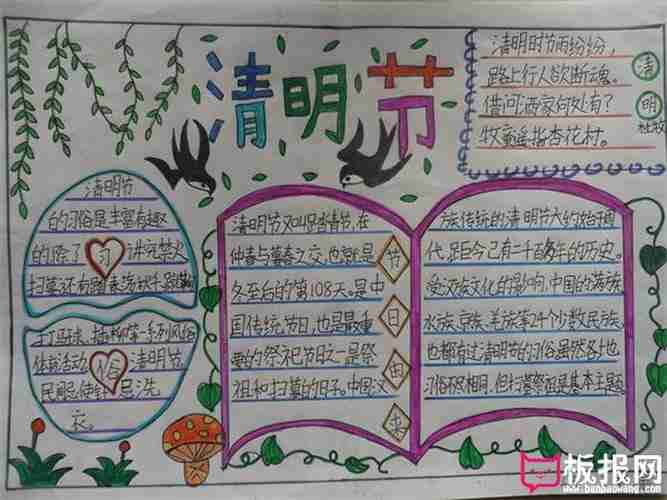 清明节
清明时节雨纷纷,
路上行人欲断魂。
借问酒家何处有?
牧童遥指杏花村。
清
明
清明节
的习俗是丰富有趣
的,除了
习
讲究禁火
扫墓,还有踏青荡秋千,蹴鞠
打马球、插柳等一系列风俗
体裁活动。
俗
清明节
民间忌使针,忌洗
衣。
清明节又叫踏青节,在
仲春与暮春之交,也就是
冬至后的第108天。是中
国传统节日,也是最重
要的祭祀节日之一是祭
祖和扫墓的日子。中国汉
节
日
由
来
族传统的清明节大约始于周
代,距今已有二千五百多年的历史。
受汉族文化的影响,中国的满族、
水族、京族、羌族等24个少数民族。
也都有过清明节的习俗虽然各地
习俗不尽相同,但扫墓祭祖是基本主题。
板报网
www.banbaowang.com